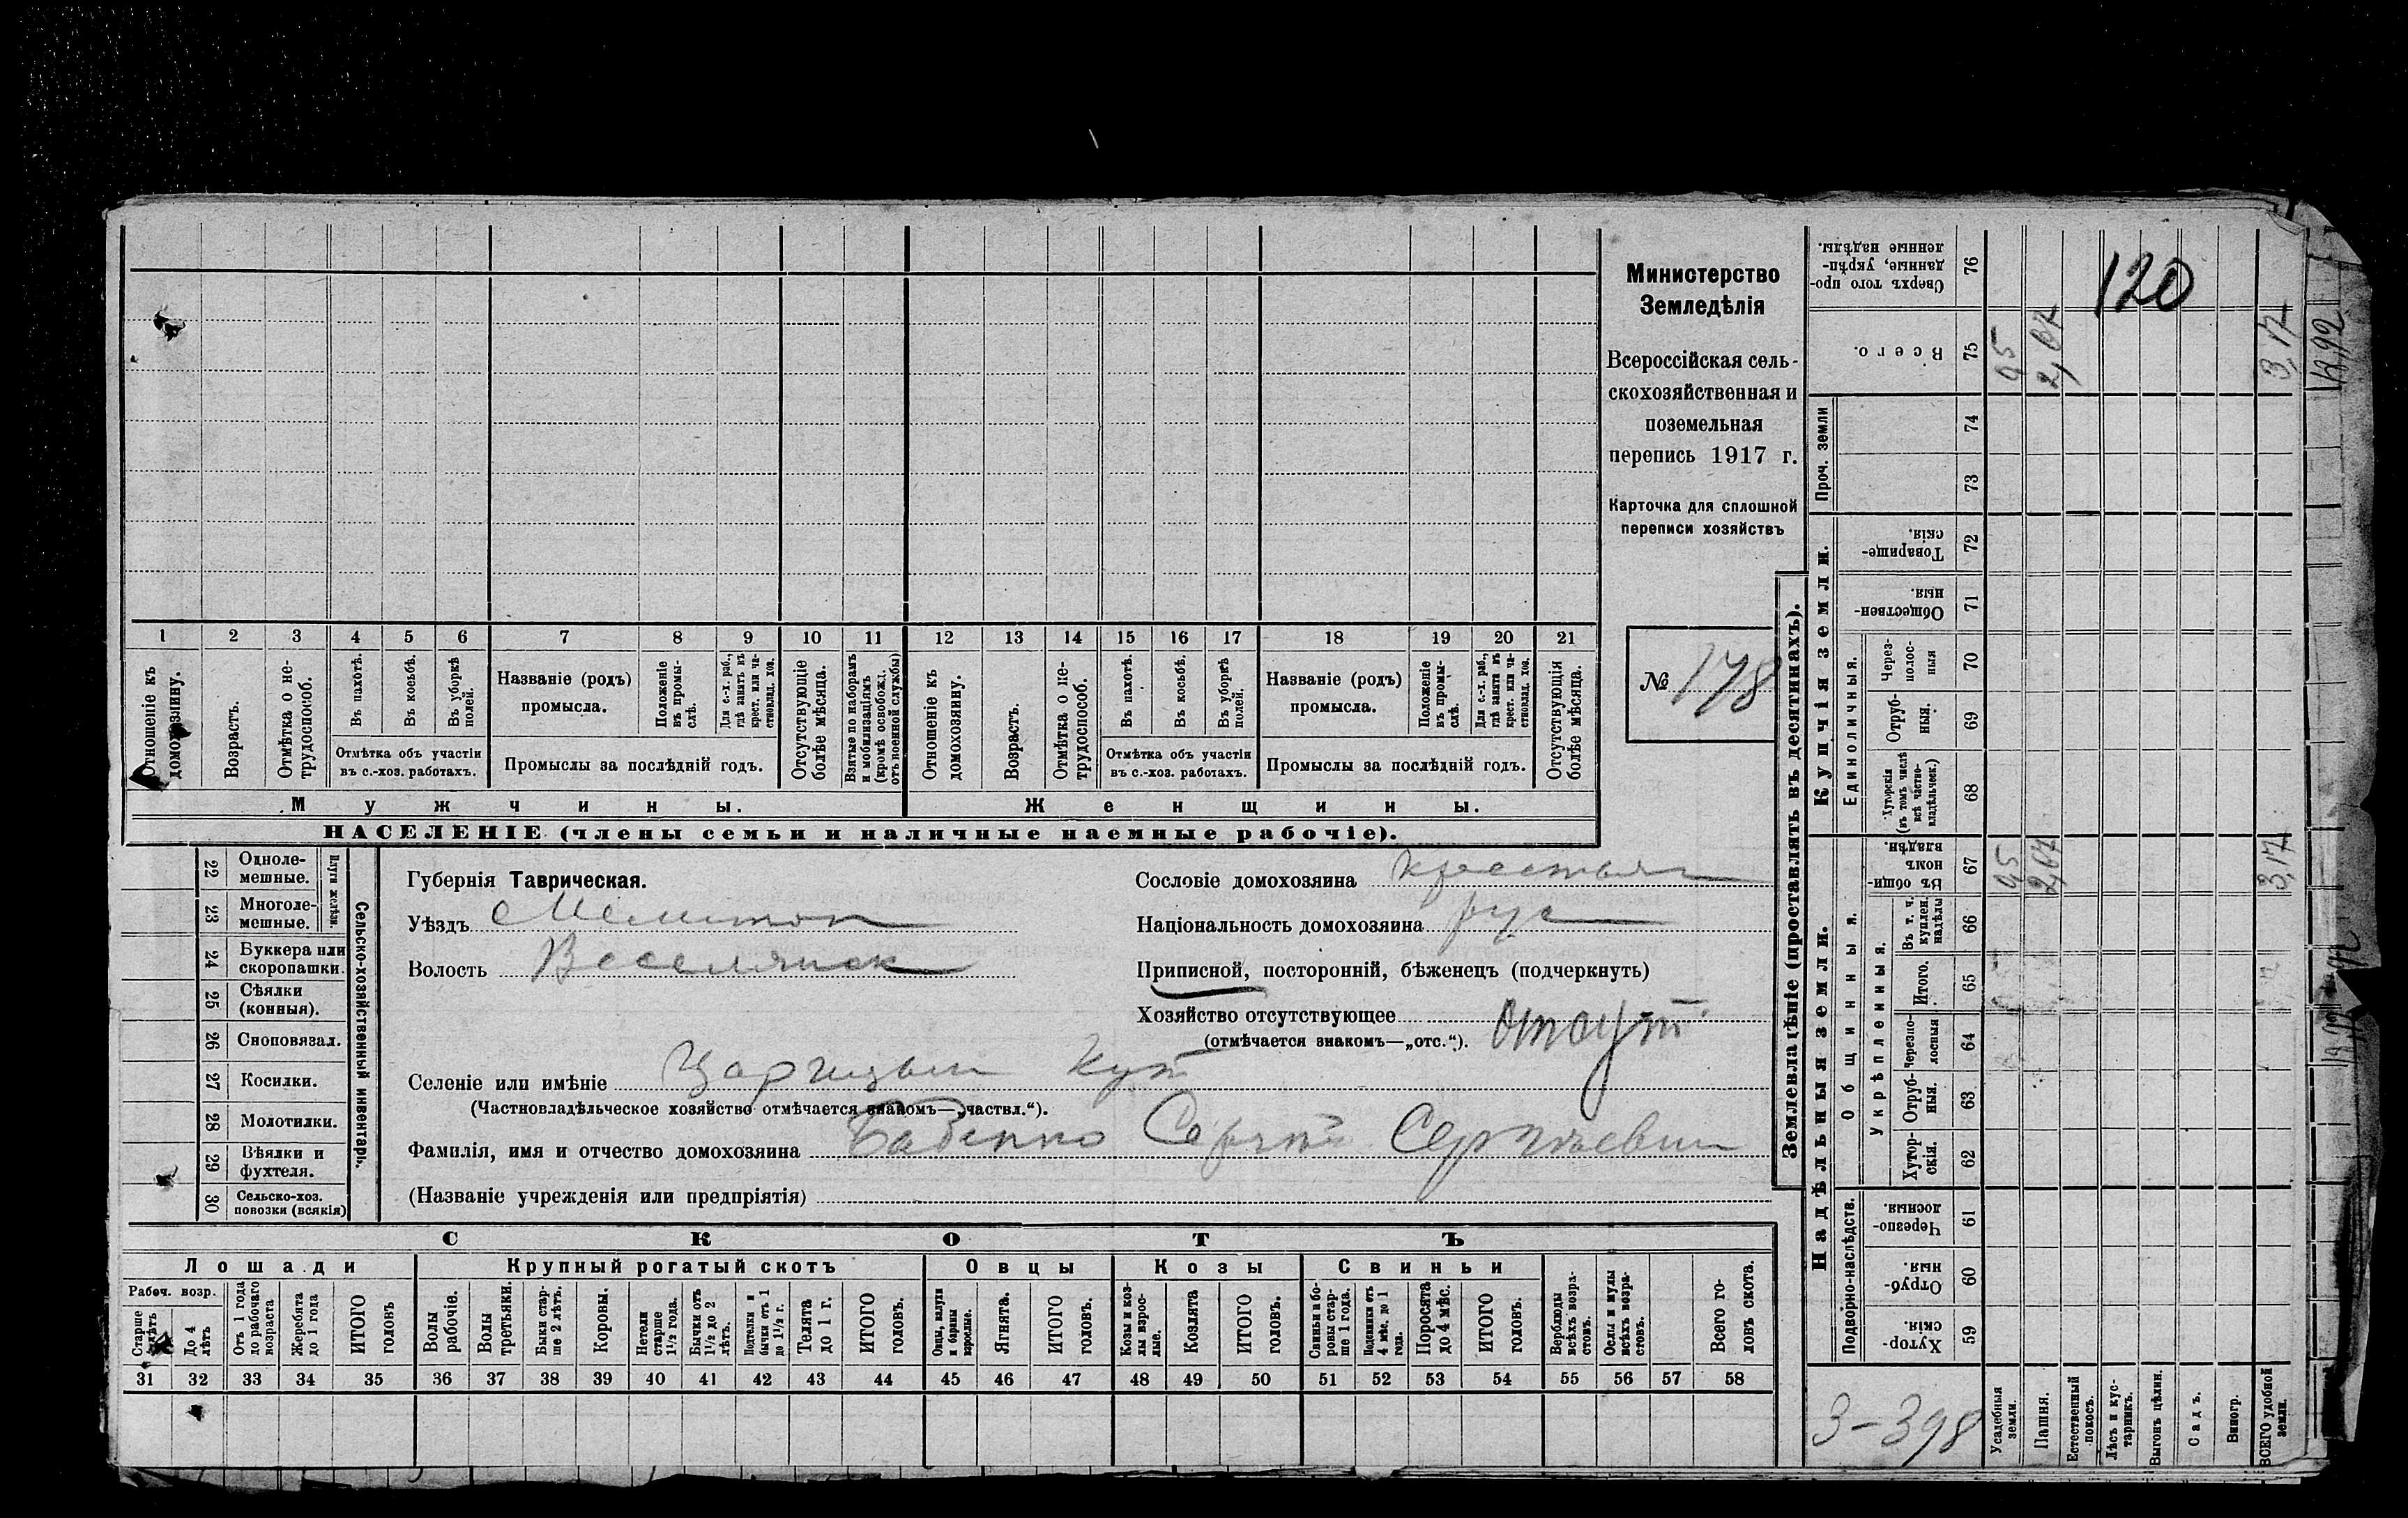 Министерство
Земледѣлія
Всероссійская сель-
скохозяйственная и
поземельная
перепись 1917 г.
Карточка для сплошной
переписи хозяйствъ
№ 178
1 2 3 4 5 6 7 8 9 10 11 12 13 14 15 16 17 18 19 20 21
Отношеніе къ домохозяину.
Возрастъ.
Отмѣтка о не-трудоспособ.
Въ пахотѣ.
Въ косьбѣ.
Въ уборкѣ полей.
Отмѣтка объ участіи
въ с.-хоз. работахъ.
Названіе (родъ)
промысла.
Положеніе въ промы-слѣ.
Для с.-х. раб., гдѣ занятъ въ крест. или ча-стновлад. хоз.
Промыслы за послѣдній годъ.
Отсутствующіе болѣе мѣсяца.
Взятые по наборамъ и мобилизаціямъ (кромѣ освобожд. отъ военной службы)
Отношеніе къ домохозяину.
Возрастъ.
Отмѣтка о не-трудоспособ.
Въ пахотѣ.
Въ косьбѣ.
Въ уборкѣ полей.
Отмѣтка объ участіи
въ с.-хоз. работахъ.
Названіе (родъ)
промысла.
Положеніе въ промы-слѣ.
Для с.-х. раб., гдѣ занята въ крест. или ча-стновлад. хоз.
Промыслы за послѣдній годъ.
Отсутствующія болѣе мѣсяца.
Мужчины.
Женщины.
НАСЕЛЕНІЕ (члены семьи и наличные наемные рабочіе).
22 Одноле-мешные.
23 Многоле-мешные.
Плуги желѣзн.
24 Буккера или скоропашки.
25 Сѣялки (конныя).
26 Сноповязал.
27 Косилки.
28 Молотилки.
29 Вѣялки и фухтеля.
30 Сельско-хоз. повозки (всякія)
Сельско-хозяйственный инвентарь.
Губернія Таврическая.
Уѣздъ Мелитоп
Волость Веселянск
Сословіе домохозяина крестьян
Національность домохозяина рус
Приписной, посторонній, бѣженецъ (подчеркнуть)
Хозяйство отсутствующее отсут.
(отмѣчается знакомъ—„отс.“).
Селеніе или имѣніе Царицын Кут
(Частновладѣльческое хозяйство отмѣчается знакомъ—„частвл.“).
Фамилія, имя и отчество домохозяина Бабенко Сергѣй Сергѣевич
(Названіе учрежденія или предпріятія)
СКОТЪ
Лошади
Крупный рогатый скотъ
Овцы
Козы
Свиньи
Рабоч. возр.
Старше 4 лѣтъ
До 4 лѣтъ
Отъ 1 года до рабочаго возраста
Жеребята до 1 года
ИТОГО головъ
Волы рабочіе.
Волы третьяки.
Быки стар-ше 2 лѣтъ.
Коровы.
Нетели старше 1½ года.
Бычки отъ 1½ до 2 лѣтъ.
Подтелки и бычки отъ 1 до 1½ г.
Телята до 1 г.
ИТОГО головъ.
Овцы, валухи и бараны взрослые.
Ягнята.
ИТОГО головъ.
Козы и коз-лы взрос-лые.
Козлята
ИТОГО головъ.
Свиньи и бо-ровы стар-ше 1 года.
Подсвинки отъ 4 мѣс. до 1 года.
Поросята до 4 мѣс.
ИТОГО головъ.
Верблюды всѣхъ возра-стовъ.
Ослы и мулы всѣхъ возра-стовъ.
Всего го-ловъ скота.
31 32 33 34 35 36 37 38 39 40 41 42 43 44 45 46 47 48 49 50 51 52 53 54 55 56 57 58
Землевладѣніе (проставлять въ десятинахъ).
Сверхъ того про-данные, укрѣп-ленные надѣлы. 76
120
Всего. 75
0,5 2,67 3,17
Проч. земли
74
73
Купчія земли.
Товарище-скія. 72
Обществен-ныя. 71
Единоличныя.
Через-полос-ныя 70
Отруб-ныя. 69
Хуторскія (въ томъ числѣ всѣ частно-владѣльческ.) 68
Надѣльныя земли.
Общинныя.
Въ общи-номъ владѣн. 67
0,5 2,67 3,17
Укрѣпленныя.
Въ т. ч. куплен. надѣлы 66
Итого. 65
Черезпо-лосныя 64
Отруб-ныя. 63
Хутор-скія. 62
Подворно-наслѣдств.
Черезпо-лосныя. 61
Отруб-ныя. 60
Хутор-скія. 59
3-398
Усадебныя земли.
Пашня.
Естественный покосъ.
Лѣсъ и кус-тарникъ.
Выгонъ цѣлин.
Садъ.
Виногр.
ВСЕГО удобной земли.